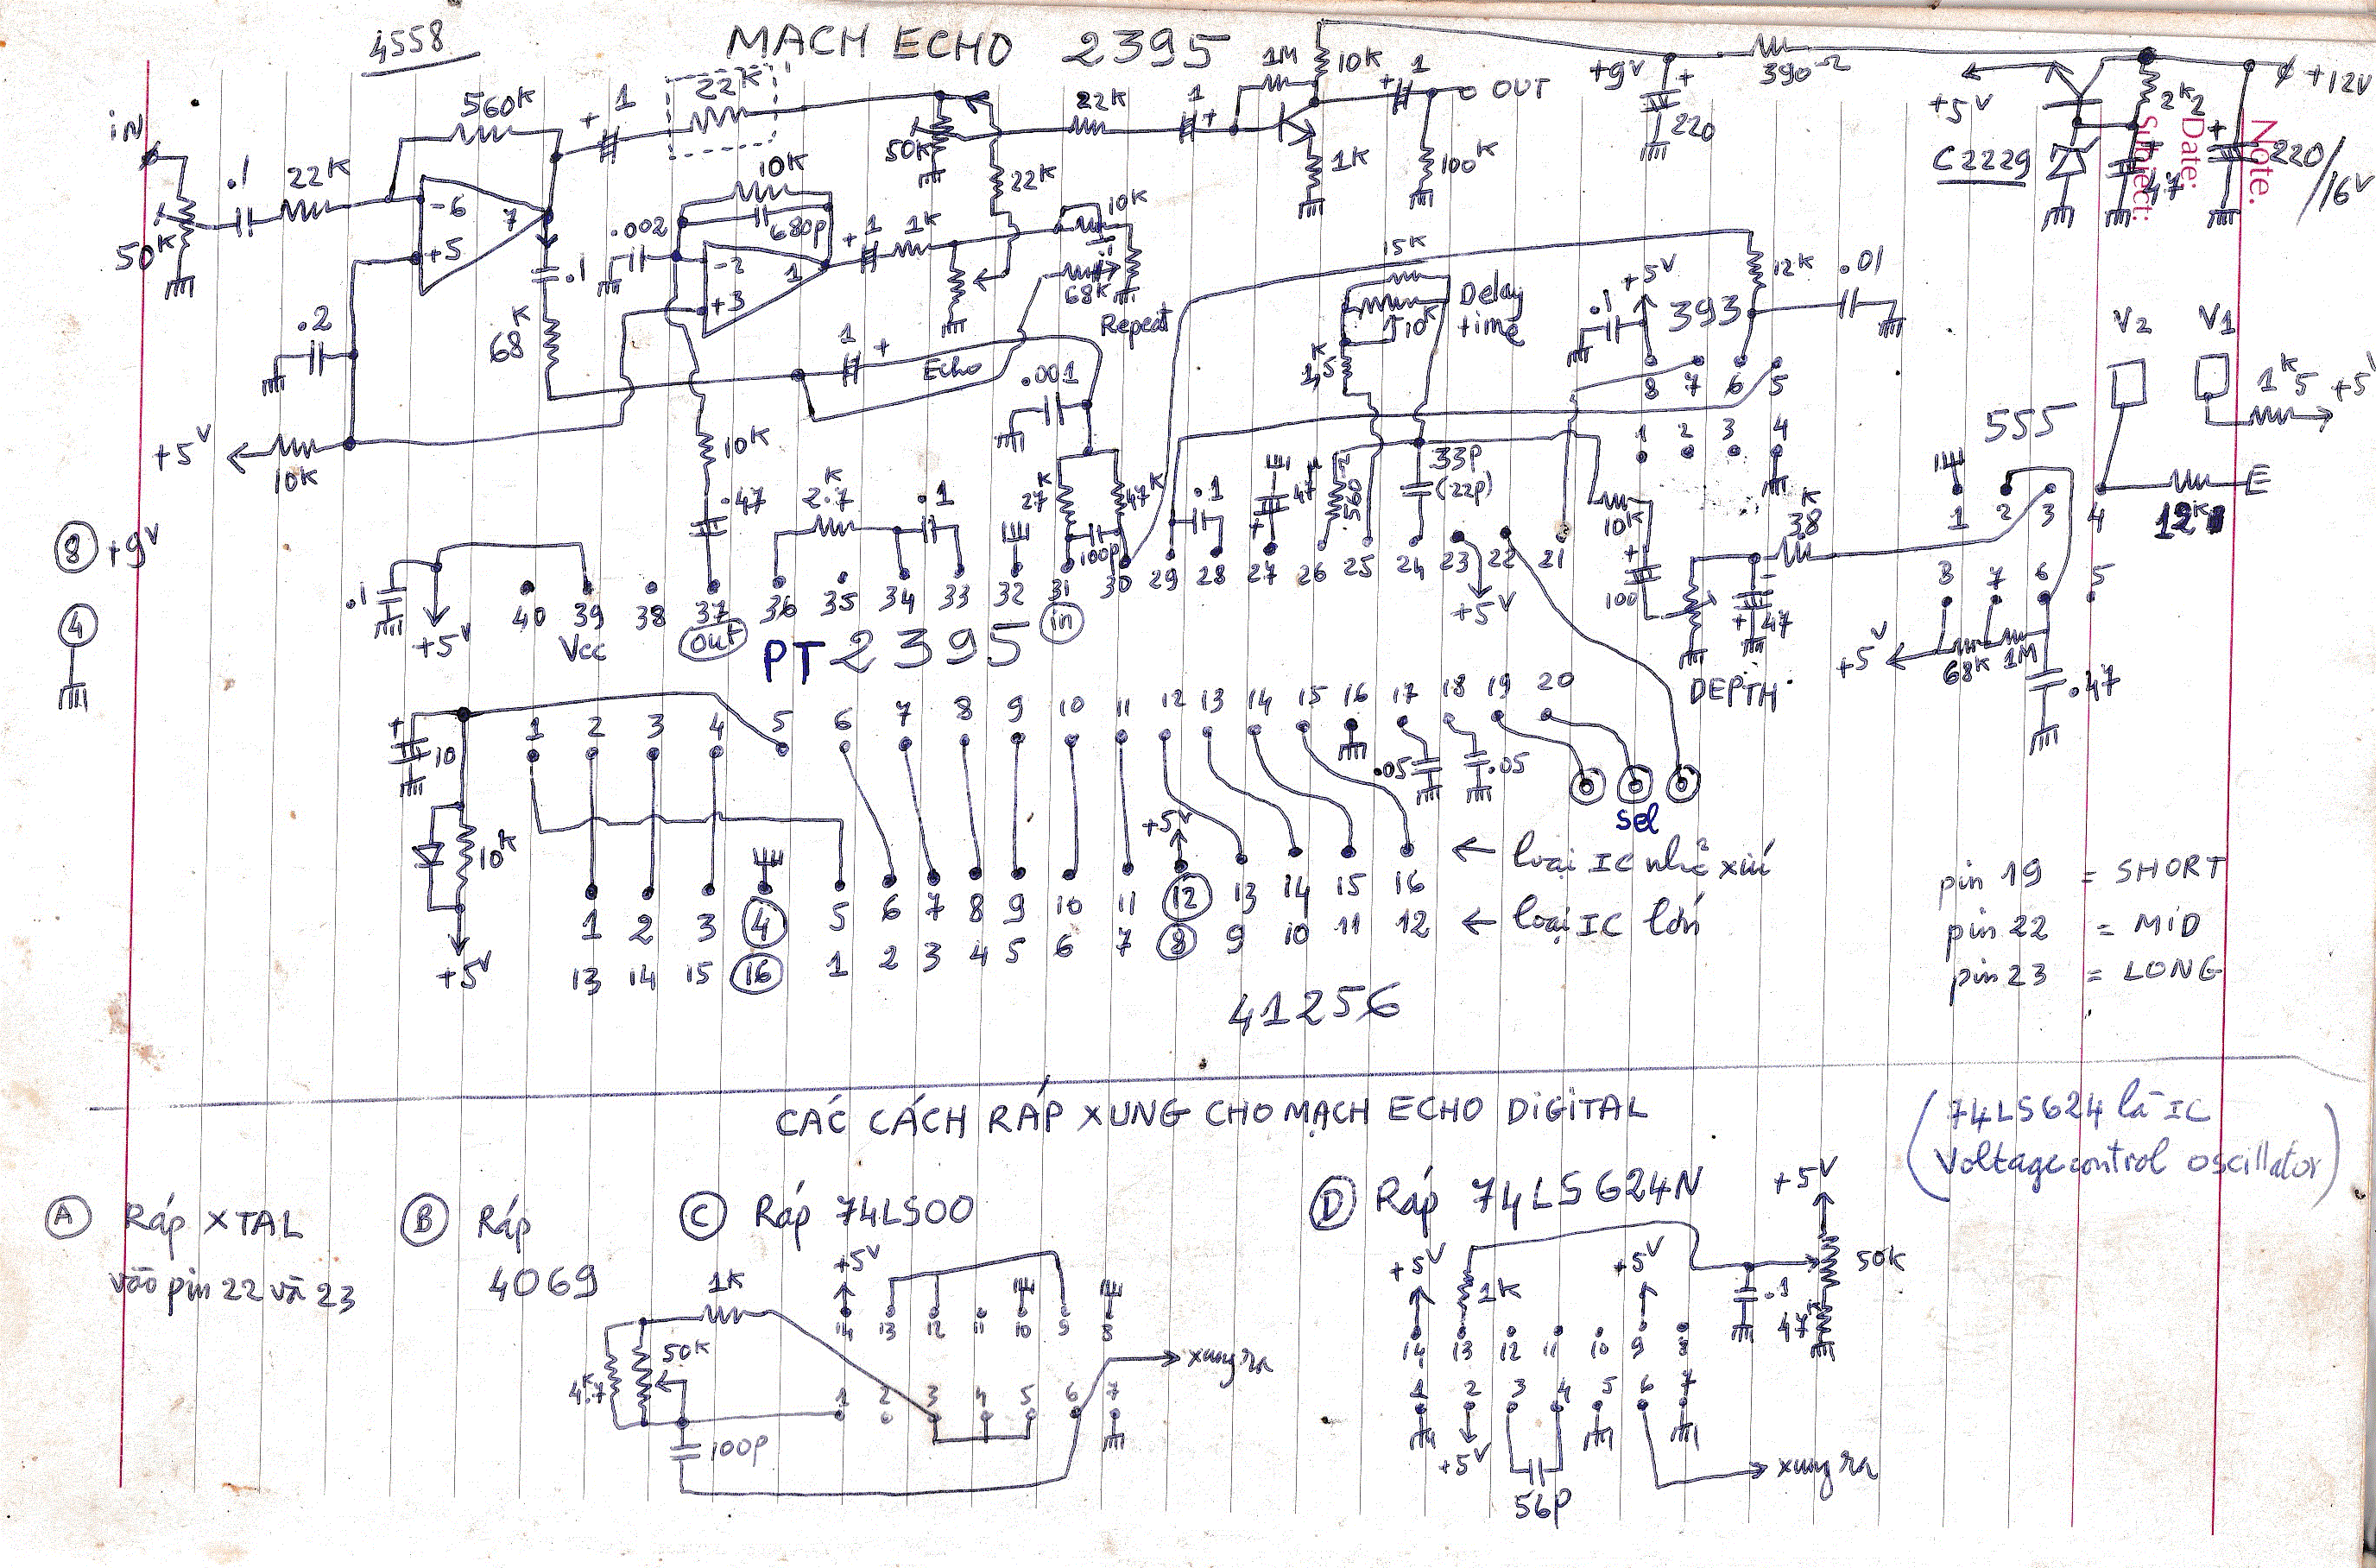 4558
MACH ECHO 2395
iN
50K
.1
22K
560K
-6
+5
7
+ 1
22K
.1
68K
.2
+5V
10K
.002
10K
680p
-2
+3
1
+ 1
1K
50K
22K
22K
1 +
1M
10K
1K
+ 1
OUT
100K
+9V
+
220
390Ω
+5V
C2229
2K2
+ 47
+
220/16V
+12V
Note.
Date:
Subject:
10K
68K
Repeat
1 +
Echo
.001
15K
10K
Delay time
1,5K
+5V
.1
393
12K
.01
8 7 6 5
1 2 3 4
V2 V1
1K5 +5V
555
12K
E
1 2 3 4
8 7 6 5
+5V
68K 1M
.47
38K
10K
+ 100
+ 47
DEPTH
8 +9V
4
.1
+5V
10K
.47
2.7K
.1
27K
47K
100p
.1
+ 47
560
33p
(22p)
40 39 38 37 36 35 34 33 32 31 30 29 28 27 26 25 24 23 22 21
Vcc
out
in
+5V
PT2395
+ 10
10K
+5V
1 2 3 4 5 6 7 8 9 10 11 12 13 14 15 16 17 18 19 20
.05
.05
Sel
+5V
1 2 3 4 5 6 7 8 9 10 11 12 13 14 15 16
← loại IC nhỏ xíu
13 14 15 16 1 2 3 4 5 6 7 8 9 10 11 12
← loại IC lớn
41256
pin 19 = SHORT
pin 22 = MiD
pin 23 = LONG
CÁC CÁCH RÁP XUNG CHO MẠCH ECHO DiGiTAL
(74LS624 là IC
Voltage control oscillator)
A Ráp XTAL
vào pin 22 và 23
B Ráp
4069
C Ráp 74LS00
1K
+5V
14 13 12 11 10 9 8
50K
4.7K
1 2 3 4 5 6 7
100p
xung ra
D Ráp 74LS624N
+5V
1K
+5V
+5V
50K
.1
47K
14 13 12 11 10 9 8
1 2 3 4 5 6 7
+5V
56p
xung ra